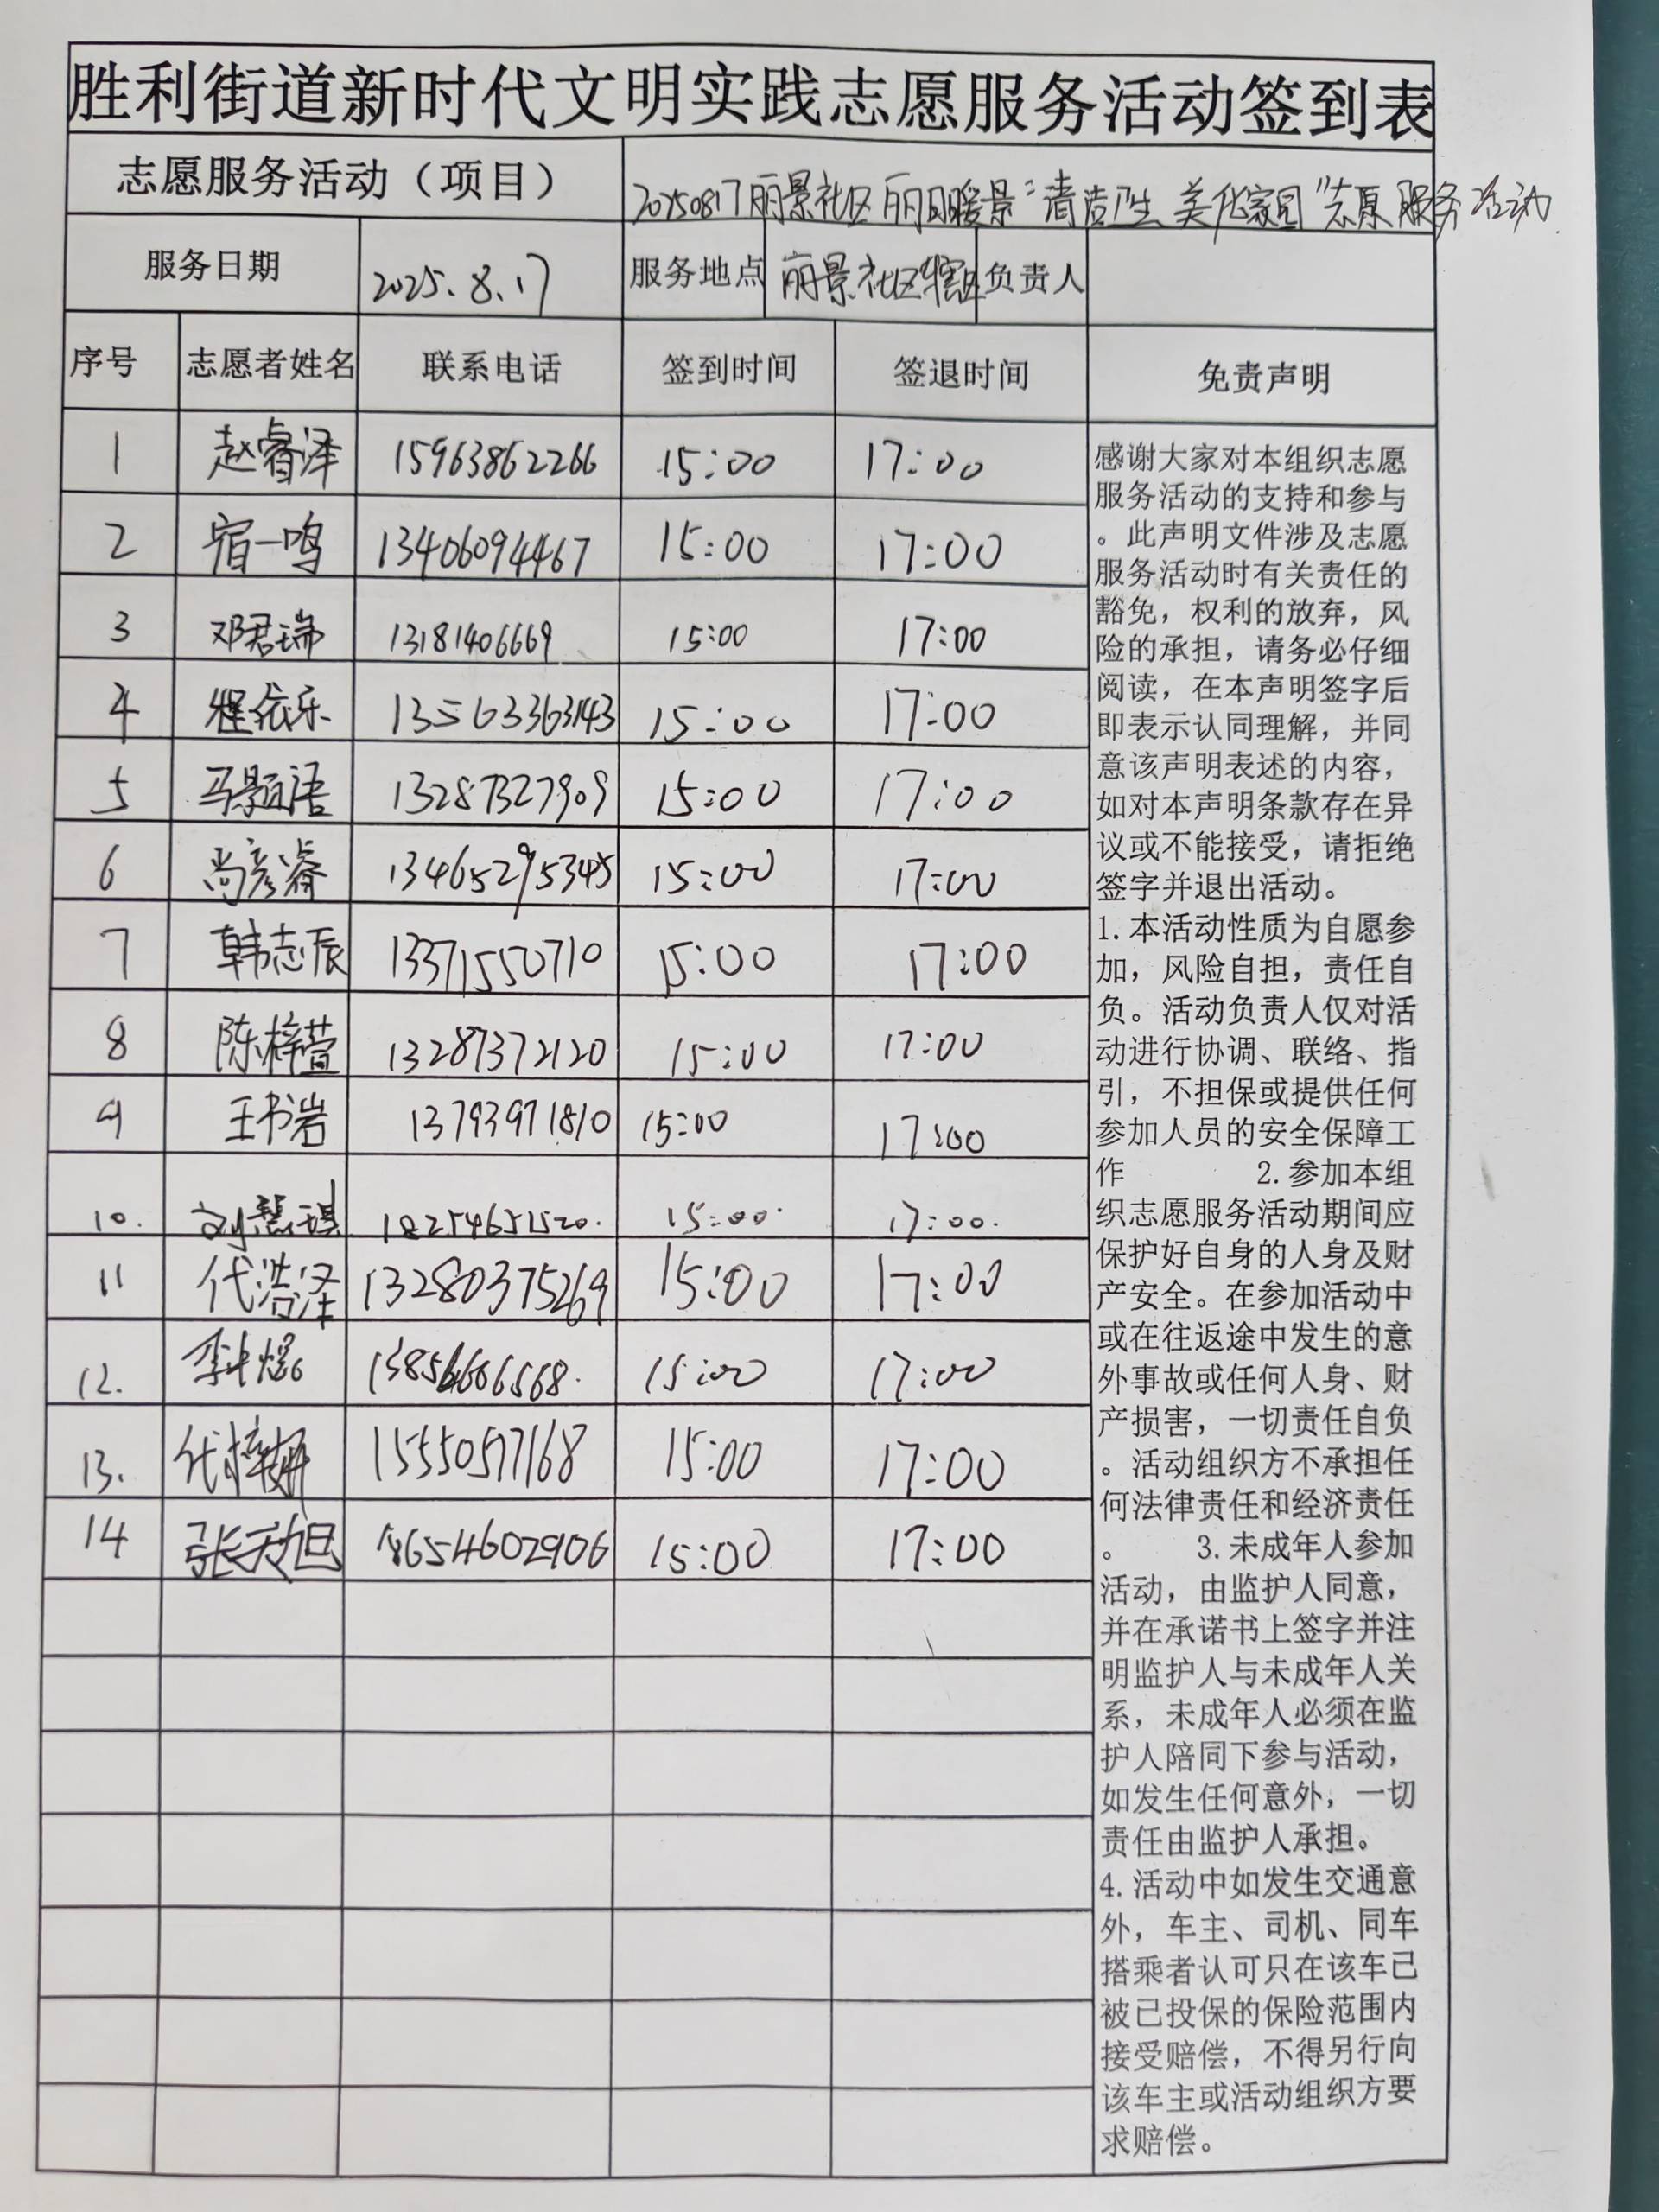 胜利街道新时代文明实践志愿服务活动签到表
志愿服务活动（项目） 20250817丽景社区丽日暖景“清洁卫生 美化家园”志愿服务活动
服务日期 2025.8.17 服务地点 丽景社区辖区 负责人
序号 志愿者姓名 联系电话 签到时间 签退时间 免责声明
1 赵睿泽 15963862266 15:00 17:00
2 宿一鸣 13406094467 15:00 17:00
3 邓君瑞 13181406669 15:00 17:00
4 程依乐 13563363143 15:00 17:00
5 马景语 13287327909 15:00 17:00
6 尚彦睿 13465295345 15:00 17:00
7 韩志辰 13371550710 15:00 17:00
8 陈梓萱 13287372120 15:00 17:00
9 王书岩 13793971810 15:00 17:00
10. 刘慧琪 18254651520. 15:00. 17:00.
11 代浩泽 13280375269 15:00 17:00
12. 15:00 17:00
13. 代梓妍 15550577168 15:00 17:00
14 张天旭 18654602906 15:00 17:00
感谢大家对本组织志愿
服务活动的支持和参与
。此声明文件涉及志愿
服务活动时有关责任的
豁免，权利的放弃，风
险的承担，请务必仔细
阅读，在本声明签字后
即表示认同理解，并同
意该声明表述的内容，
如对本声明条款存在异
议或不能接受，请拒绝
签字并退出活动。
1.本活动性质为自愿参
加，风险自担，责任自
负。活动负责人仅对活
动进行协调、联络、指
引，不担保或提供任何
参加人员的安全保障工
作 2.参加本组
织志愿服务活动期间应
保护好自身的人身及财
产安全。在参加活动中
或在往返途中发生的意
外事故或任何人身、财
产损害，一切责任自负
。活动组织方不承担任
何法律责任和经济责任
。 3.未成年人参加
活动，由监护人同意，
并在承诺书上签字并注
明监护人与未成年人关
系，未成年人必须在监
护人陪同下参与活动，
如发生任何意外，一切
责任由监护人承担。
4.活动中如发生交通意
外，车主、司机、同车
搭乘者认可只在该车已
被已投保的保险范围内
接受赔偿，不得另行向
该车主或活动组织方要
求赔偿。